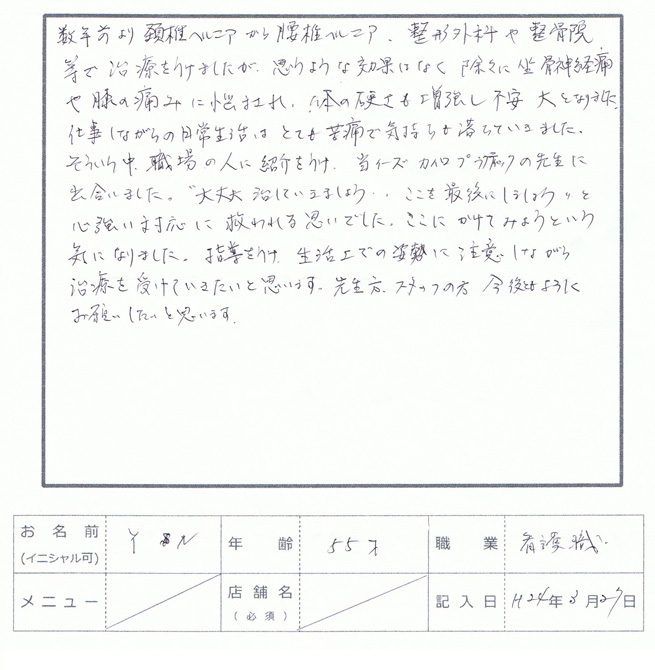 数年前より頚椎ヘルニアから腰椎ヘルニア、整形外科や整骨院
等で治療をうけましたが、思うような効果はなく除々に坐骨神経痛
や膝の痛みに悩まされ、体の硬さも増強し不安大となりました。
仕事しながらの日常生活はとても苦痛で気持ちも落ちていきました。
そういう中、職場の人に紹介をうけ、当イーズカイロプラクティックの先生に
出会いました。"大丈夫治していきましょう・・ここを最後にしましょう"と
心強い対応に救われる思いでした。ここにかけてみようという
気になりました。指導をうけ、生活上での姿勢に注意しながら
治療を受けていきたいと思います。先生方、スタッフの方今後ともよろしく
お願いしたいと思います。
お名前 (イニシャル可) Y N 年齢 55才 職業 看護職
メニュー 店舗名 (必須) 記入日 H24年3月27日